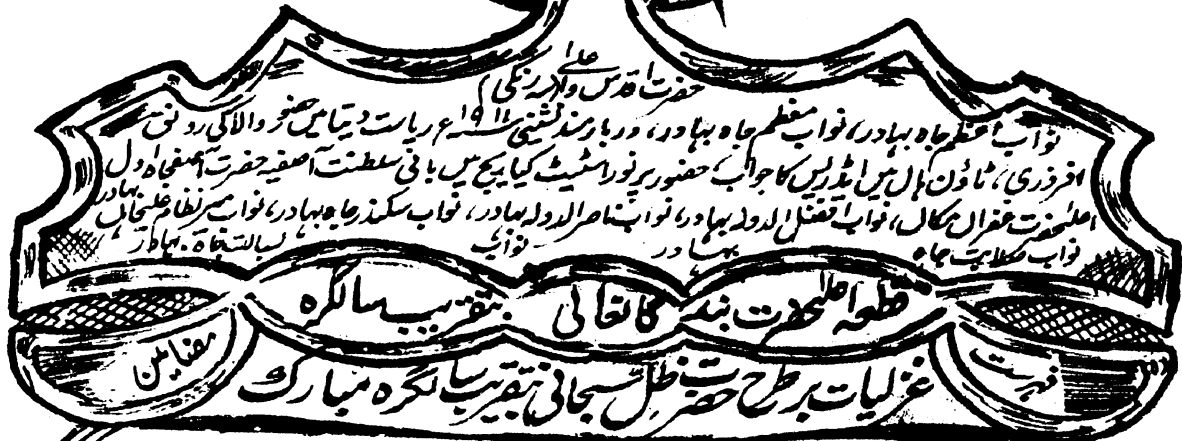 حضرت اقدس و اعلیٰ
نواب اعظم جاہ بہادر، نواب معظم جاہ بہادر، دربار مسند نشینی ۱۹۱۱ء ریاست دنیا میں حضور والا کی رونق
افروزی، ٹاؤن ہال میں ایڈریس کا جواب، حضور پرنور اسٹیٹ کیا بیچ میں بانی سلطنت آصفیہ حضرت آصفجاہ اول
اعلیٰحضرت غفراں مکاں، نواب افضل الدولہ بہادر، نواب ناصر الدولہ بہادر، نواب سکندر جاہ بہادر، نواب میر نظام علیخاں بہادر
نواب صلابت جاہ بہادر نواب بسالت جاہ بہادر
قطعہ اعلیٰحضرت بندگانعالی بتقریب سالگرہ
فہرست مضامین
غزلیات بر طرح حضرت ظل سبحانی بتقریب سالگرہ مبارک